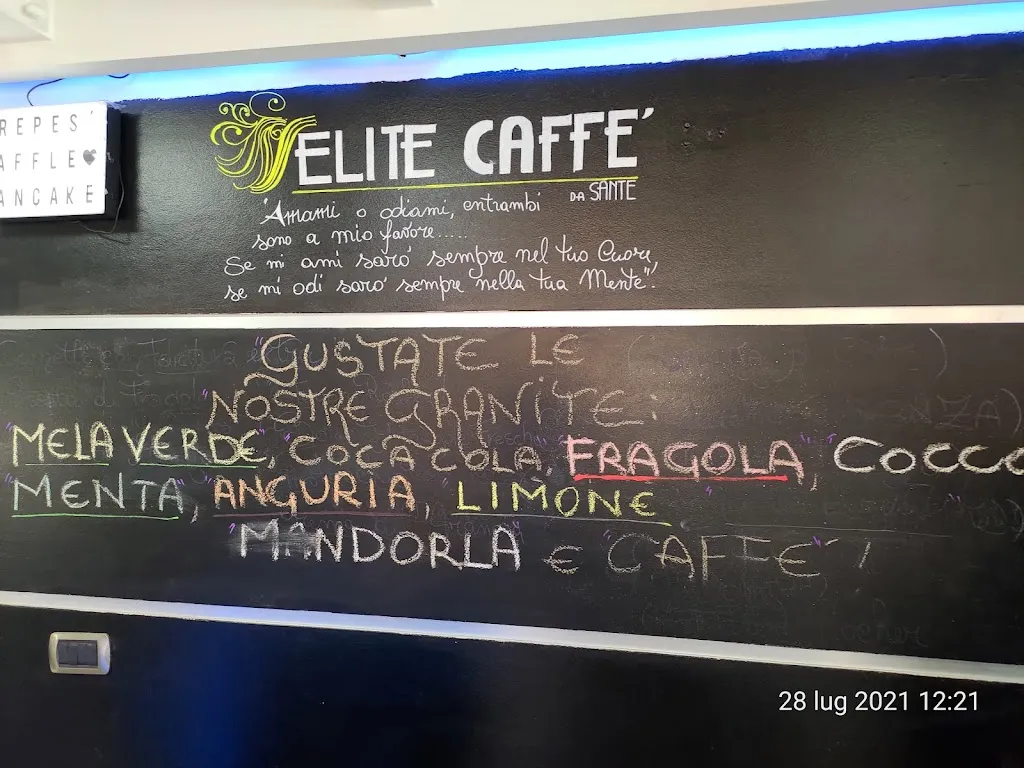 REPES'
AFFLE
ANCAKE
ELITE CAFFE'
DA SANTE
"Amami o odiami, entrambi
sono a mio favore.....
Se mi ami saro' sempre nel tuo Cuore,
se mi odi saro' sempre nella tua Mente".
"GUSTATE LE
NOSTRE GRANITE:
"MELA VERDE", "COCA COLA", "FRAGOLA", COCCO
"MENTA", ANGURIA, LIMONE"
"MANDORLA" e "CAFFE"!
28 lug 2021 12:21